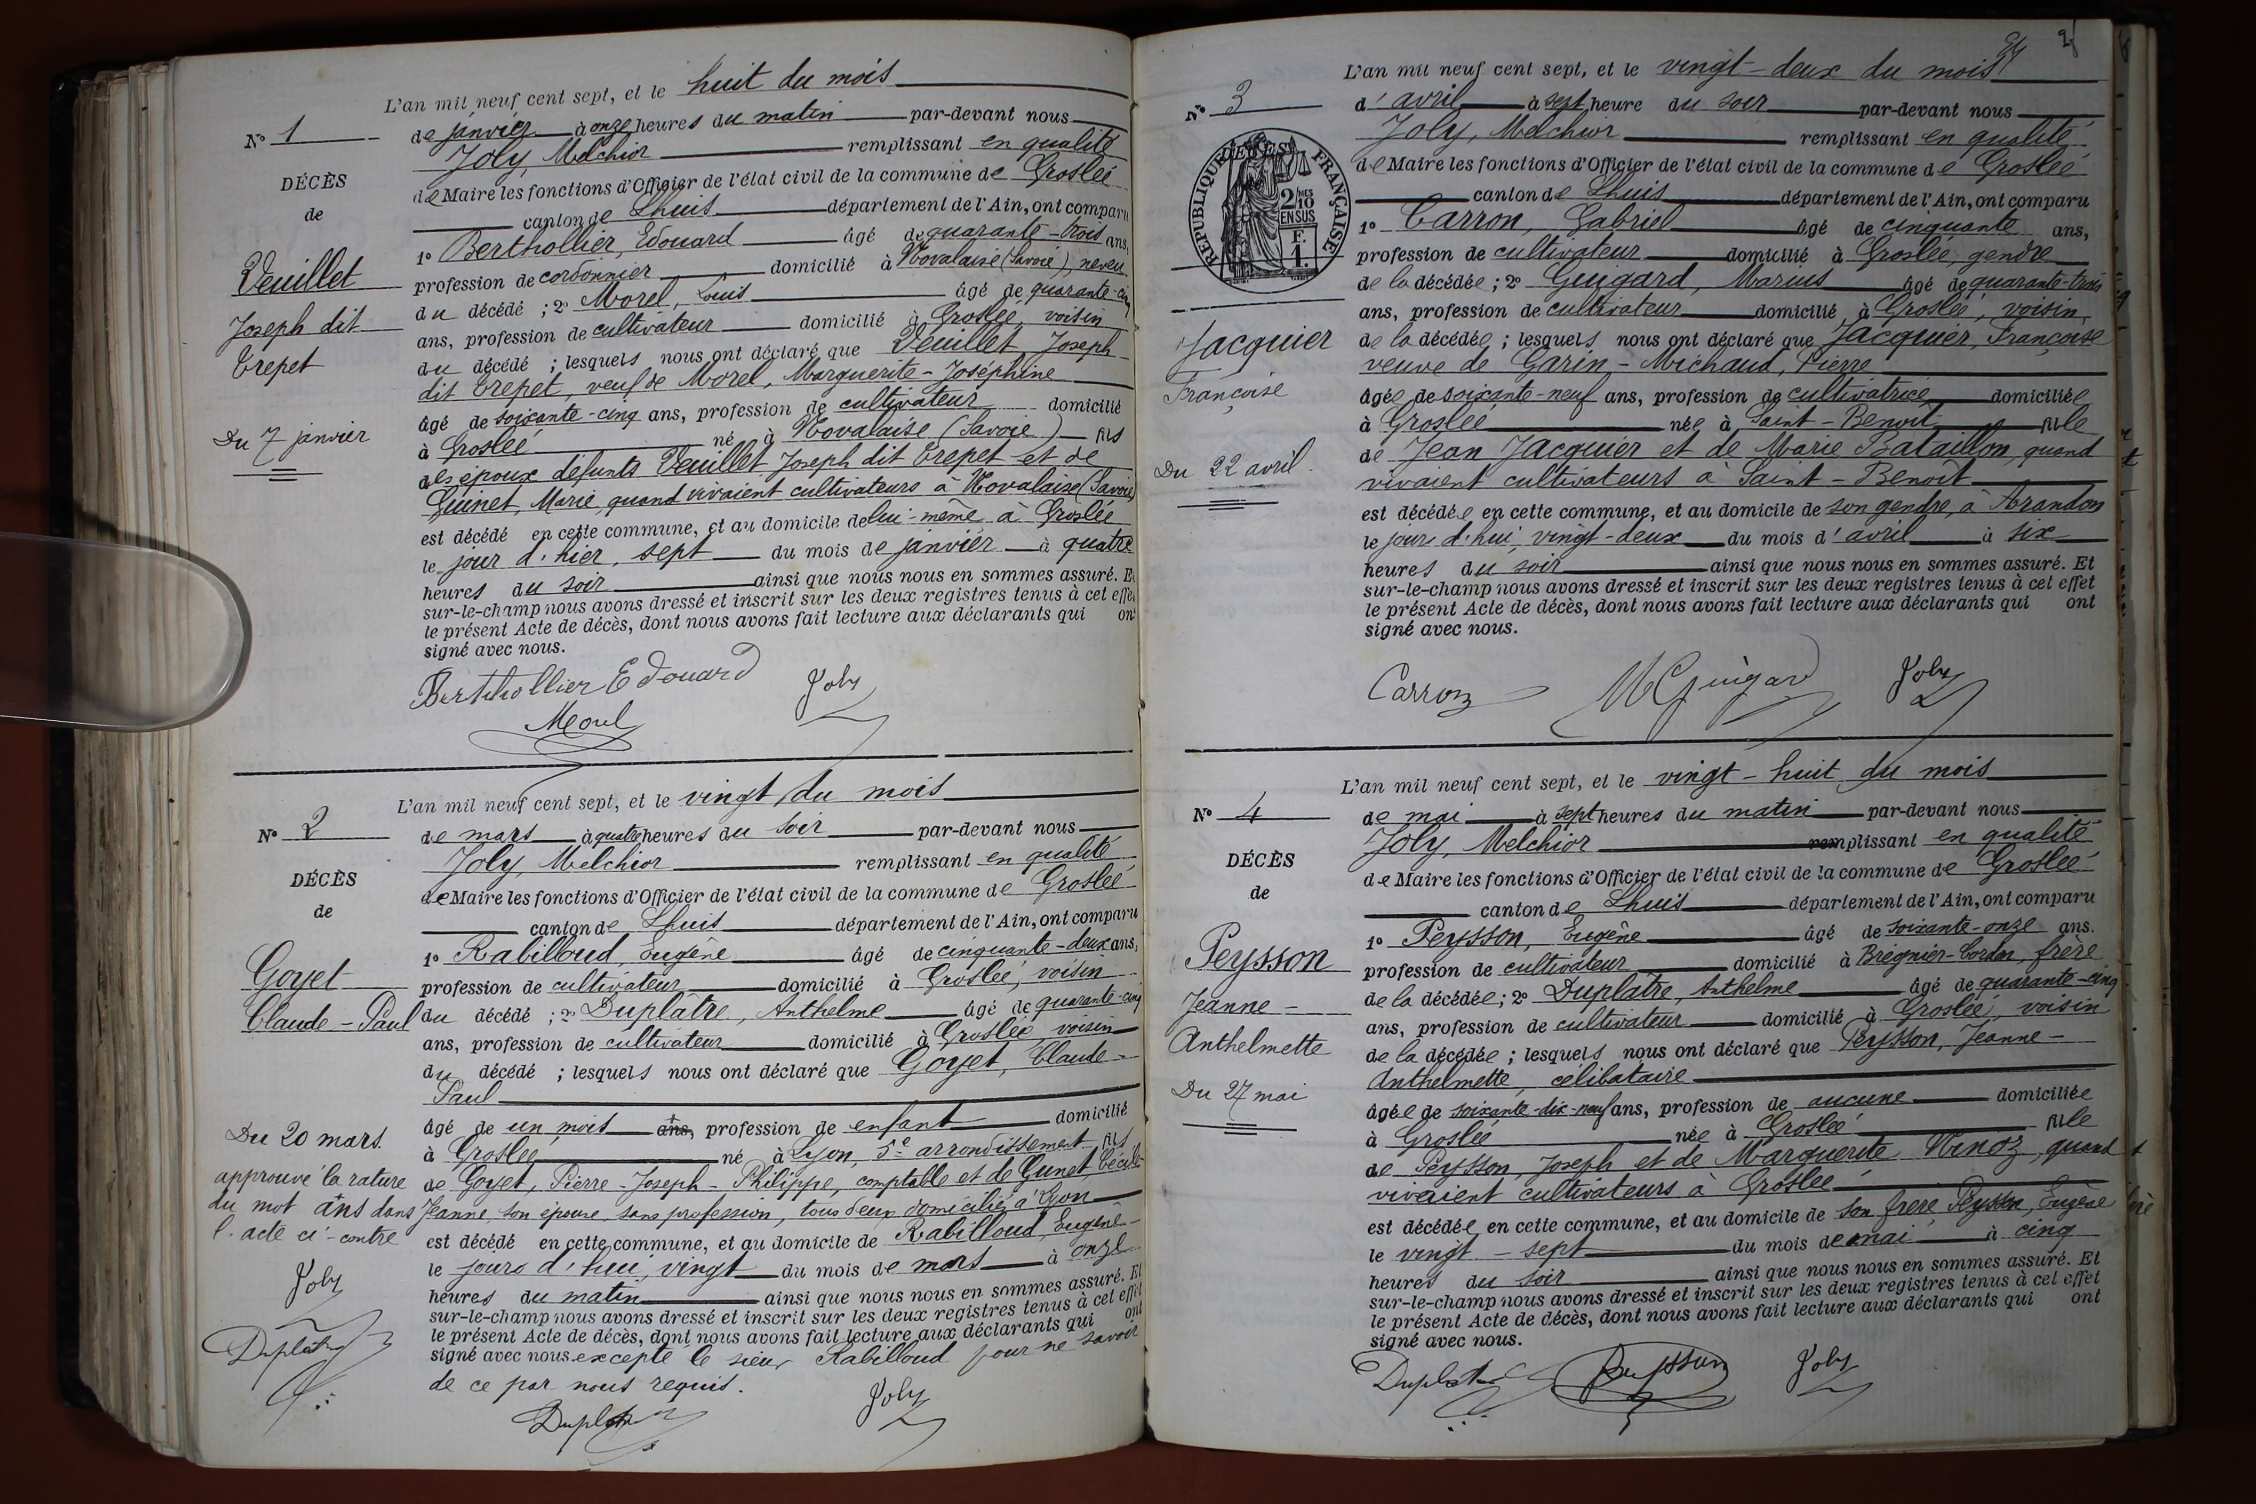 L'an mil neuf cent sept, et le huit du mois
N° 1
de janvier à onze heures du matin par-devant nous
Joly, Melchior remplissant en qualité
DÉCÈS
de Maire les fonctions d'Officier de l'état civil de la commune de Groslée
de
canton de Lhuis département de l'Ain, ont comparu
1° Berthollier, Edouard âgé de quarante-trois ans,
Veuillet
profession de cordonnier domicilié à Novalaise (Savoie), neveu
du décédé ; 2° Morel, Louis âgé de quarante-cinq
Joseph dit
ans, profession de cultivateur domicilié à Groslée, voisin
Trepet
du décédé ; lesquels nous ont déclaré que Veuillet Joseph
dit Trepet, veuf de Morel, Marguerite-Joséphine
âgé de soixante-cinq ans, profession de cultivateur domicilié
Du 7 janvier
à Groslée né à Novalaise (Savoie) fils
des époux défunts Veuillet Joseph dit Trepet et de
Guinet, Marie, quand vivaient cultivateurs à Novalaise (Savoie)
est décédé en cette commune, et au domicile de lui-même à Groslée
le jour d'hier, sept du mois de janvier à quatre
heures du soir ainsi que nous nous en sommes assuré. Et
sur-le-champ nous avons dressé et inscrit sur les deux registres tenus à cet effet
le présent Acte de décès, dont nous avons fait lecture aux déclarants qui ont
signé avec nous.
Berthollier Edouard Joly
L'an mil neuf cent sept, et le vingt du mois
N° 2
de mars à quatre heures du soir par-devant nous
Joly, Melchior remplissant en qualité
DÉCÈS
de Maire les fonctions d'Officier de l'état civil de la commune de Groslée
de
canton de Lhuis département de l'Ain, ont comparu
1° Rabilloud, Eugène âgé de cinquante-deux ans,
Goyet
profession de cultivateur domicilié à Groslée, voisin
Claude-Paul
du décédé ; 2° Duplâtre, Anthelme âgé de quarante-cinq
ans, profession de cultivateur domicilié à Groslée, voisin
du décédé ; lesquels nous ont déclaré que Goyet, Claude-
Paul
Du 20 mars
âgé de un mois ans, profession de enfant domicilié
à Groslée né à Lyon, 5e arrondissement, fils
approuvé la rature
de Goyet, Pierre-Joseph-Philippe, comptable et de Gunet, Cécile-
du mot ans dans
Jeanne, son épouse, sans profession, tous deux domiciliés à Lyon
l'acte ci-contre
est décédé en cette commune, et au domicile de Rabilloud, Eugène-
le jour d'hui, vingt du mois de mars à onze
Joly
heures du matin ainsi que nous nous en sommes assuré. Et
sur-le-champ nous avons dressé et inscrit sur les deux registres tenus à cet effet
le présent Acte de décès, dont nous avons fait lecture aux déclarants qui ont
Duplatre
signé avec nous excepté le sieur Rabilloud pour ne savoir
de ce par nous requis.
Duplatre Joly
L'an mil neuf cent sept, et le vingt-deux du mois
N° 3
d'avril à sept heure du soir par-devant nous
Joly, Melchior remplissant en qualité
RÉPUBLIQUE FRANÇAISE
2/10 EN SUS
F. 1.
de Maire les fonctions d'Officier de l'état civil de la commune de Groslée
canton de Lhuis département de l'Ain, ont comparu
1° Carron, Gabriel âgé de cinquante ans,
profession de cultivateur domicilié à Groslée, gendre
de la décédée ; 2° Guigard, Marius âgé de quarante-trois
ans, profession de cultivateur domicilié à Groslée, voisin
Jacquier
de la décédée ; lesquels nous ont déclaré que Jacquier, Françoise
veuve de Garin-Michaud, Pierre
Françoise
âgée de soixante-neuf ans, profession de cultivatrice domiciliée
à Groslée née à Saint-Benoît fille
Du 22 avril.
de Jean Jacquier et de Marie Bataillon, quand
vivaient cultivateurs à Saint-Benoît
est décédée en cette commune, et au domicile de son gendre, à Arandon
le jour d'hui, vingt-deux du mois d'avril à six
heures du soir ainsi que nous nous en sommes assuré. Et
sur-le-champ nous avons dressé et inscrit sur les deux registres tenus à cet effet
le présent Acte de décès, dont nous avons fait lecture aux déclarants qui ont
signé avec nous.
Carron M Guigard Joly
L'an mil neuf cent sept, et le vingt-huit du mois
N° 4
de mai à sept heures du matin par-devant nous
Joly, Melchior remplissant en qualité
DÉCÈS
de Maire les fonctions d'Officier de l'état civil de la commune de Groslée
de
canton de Lhuis département de l'Ain, ont comparu
1° Peysson, Eugène âgé de soixante-onze ans.
Peysson
profession de cultivateur domicilié à Brégnier-Cordon, frère
de la décédée ; 2° Duplâtre, Anthelme âgé de quarante-cinq
Jeanne-
ans, profession de cultivateur domicilié à Groslée, voisin
Anthelmette
de la décédée ; lesquels nous ont déclaré que Peysson, Jeanne-
Anthelmette, célibataire
Du 27 mai
âgée de soixante-dix-neuf ans, profession de aucune domiciliée
à Groslée née à Groslée fille
de Peysson, Joseph et de Marguerite Ninoz, quand
vivaient cultivateurs à Groslée
est décédée en cette commune, et au domicile de son frère Peysson, Eugène
le vingt-sept du mois de mai à cinq
heures du soir ainsi que nous nous en sommes assuré. Et
sur-le-champ nous avons dressé et inscrit sur les deux registres tenus à cet effet
le présent Acte de décès, dont nous avons fait lecture aux déclarants qui ont
signé avec nous.
Duplatre Peysson Joly